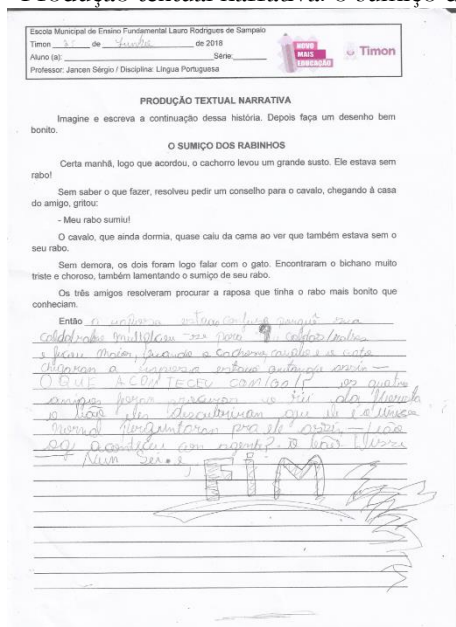 Escola Municipal de Ensino Fundamental Lauro Rodrigues de Sampaio
Timon 21 de Junho de 2018
Aluno (a): Série:
Professor: Jancen Sérgio / Disciplina: Língua Portuguesa
NOVO
MAIS
EDUCAÇÃO
Timon
PRODUÇÃO TEXTUAL NARRATIVA
Imagine e escreva a continuação dessa história. Depois faça um desenho bem
bonito.
O SUMIÇO DOS RABINHOS
Certa manhã, logo que acordou, o cachorro levou um grande susto. Ele estava sem
rabo!
Sem saber o que fazer, resolveu pedir um conselho para o cavalo, chegando à casa
do amigo, gritou:
- Meu rabo sumiu!
O cavalo, que ainda dormia, quase caiu da cama ao ver que também estava sem o
seu rabo.
Sem demora, os dois foram logo falar com o gato. Encontraram o bichano muito
triste e choroso, também lamentando o sumiço de seu rabo.
Os três amigos resolveram procurar a raposa que tinha o rabo mais bonito que
conheciam.
Então a estava porque sua
para 9
e ficou maior, quando o cachorro cavalo e o gato
chegaram a estava
O QUE ACONTECEU os quatro
amigos foram o rei da
o eles que ele é o único
normal pra ele assim
aconteceu com agente? o leão
Num sei.
FIM